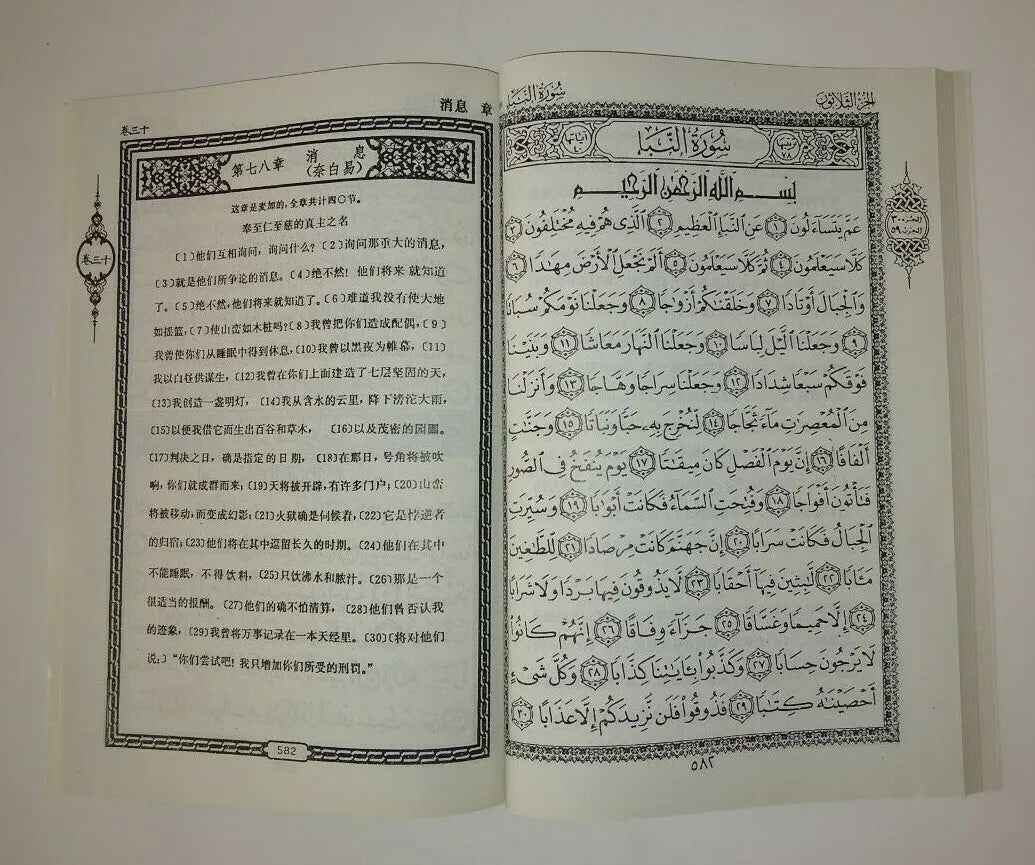 消息 章
卷三十
第七八章 消息
(奈白易)
卷三十
这章是麦加的,全章共计四〇节。
奉至仁至慈的真主之名
(1)他们互相询问,询问什么?(2)询问那重大的消息,
(3)就是他们所争论的消息。(4)绝不然!他们将来就知道
了。(5)绝不然,他们将来就知道了。(6)难道我没有使大地
如摇篮,(7)使山峦如木桩吗?(8)我曾把你们造成配偶,(9)
我曾使你们从睡眠中得到休息,(10)我曾以黑夜为帷幕,(11)
我以白昼供谋生,(12)我曾在你们上面建造了七层坚固的天,
(13)我创造一盏明灯,(14)我从含水的云里,降下滂沱大雨,
(15)以便我借它而生出百谷和草木,(16)以及茂密的园圃。
(17)判决之日,确是指定的日期,(18)在那日,号角将被吹
响,你们就成群而来;(19)天将被开辟,有许多门户;(20)山峦
将被移动,而变成幻影;(21)火狱确是伺候着,(22)它是悖逆者
的归宿;(23)他们将在其中逗留长久的时期。(24)他们在其中
不能睡眠,不得饮料,(25)只饮沸水和脓汁。(26)那是一个
很适当的报酬。(27)他们的确不怕清算,(28)他们曾否认我
的迹象,(29)我曾将万事记录在一本天经里。(30)(将对他们
说:)“你们尝试吧!我只增加你们所受的刑罚。”
582
الجزء الثلاثون
سورة النبإ
سُورَةُ النَّبَإِ
الجزء ٣٠
الحزب ٥٩
بِسْمِ اللَّهِ الرَّحْمَٰنِ الرَّحِيمِ
عَمَّ يَتَسَآءَلُونَ ١ عَنِ ٱلنَّبَإِ ٱلْعَظِيمِ ٢ ٱلَّذِى هُمْ فِيهِ مُخْتَلِفُونَ ٣
كَلَّا سَيَعْلَمُونَ ٤ ثُمَّ كَلَّا سَيَعْلَمُونَ ٥ أَلَمْ نَجْعَلِ ٱلْأَرْضَ مِهَٰدًا ٦
وَٱلْجِبَالَ أَوْتَادًا ٧ وَخَلَقْنَٰكُمْ أَزْوَٰجًا ٨ وَجَعَلْنَا نَوْمَكُمْ سُبَاتًا
٩ وَجَعَلْنَا ٱلَّيْلَ لِبَاسًا ١٠ وَجَعَلْنَا ٱلنَّهَارَ مَعَاشًا ١١ وَبَنَيْنَا
فَوْقَكُمْ سَبْعًا شِدَادًا ١٢ وَجَعَلْنَا سِرَاجًا وَهَّاجًا ١٣ وَأَنزَلْنَا
مِنَ ٱلْمُعْصِرَٰتِ مَآءً ثَجَّاجًا ١٤ لِّنُخْرِجَ بِهِۦ حَبًّا وَنَبَاتًا ١٥ وَجَنَّٰتٍ
أَلْفَافًا ١٦ إِنَّ يَوْمَ ٱلْفَصْلِ كَانَ مِيقَٰتًا ١٧ يَوْمَ يُنفَخُ فِى ٱلصُّورِ
فَتَأْتُونَ أَفْوَاجًا ١٨ وَفُتِحَتِ ٱلسَّمَآءُ فَكَانَتْ أَبْوَٰبًا ١٩ وَسُيِّرَتِ
ٱلْجِبَالُ فَكَانَتْ سَرَابًا ٢٠ إِنَّ جَهَنَّمَ كَانَتْ مِرْصَادًا ٢١ لِّلطَّٰغِينَ
مَـَٔابًا ٢٢ لَّٰبِثِينَ فِيهَآ أَحْقَابًا ٢٣ لَّا يَذُوقُونَ فِيهَا بَرْدًا وَلَا شَرَابًا
٢٤ إِلَّا حَمِيمًا وَغَسَّاقًا ٢٥ جَزَآءً وِفَاقًا ٢٦ إِنَّهُمْ كَانُوا۟
لَا يَرْجُونَ حِسَابًا ٢٧ وَكَذَّبُوا۟ بِـَٔايَٰتِنَا كِذَّابًا ٢٨ وَكُلَّ شَىْءٍ
أَحْصَيْنَٰهُ كِتَٰبًا ٢٩ فَذُوقُوا۟ فَلَن نَّزِيدَكُمْ إِلَّا عَذَابًا ٣٠
٥٨٢